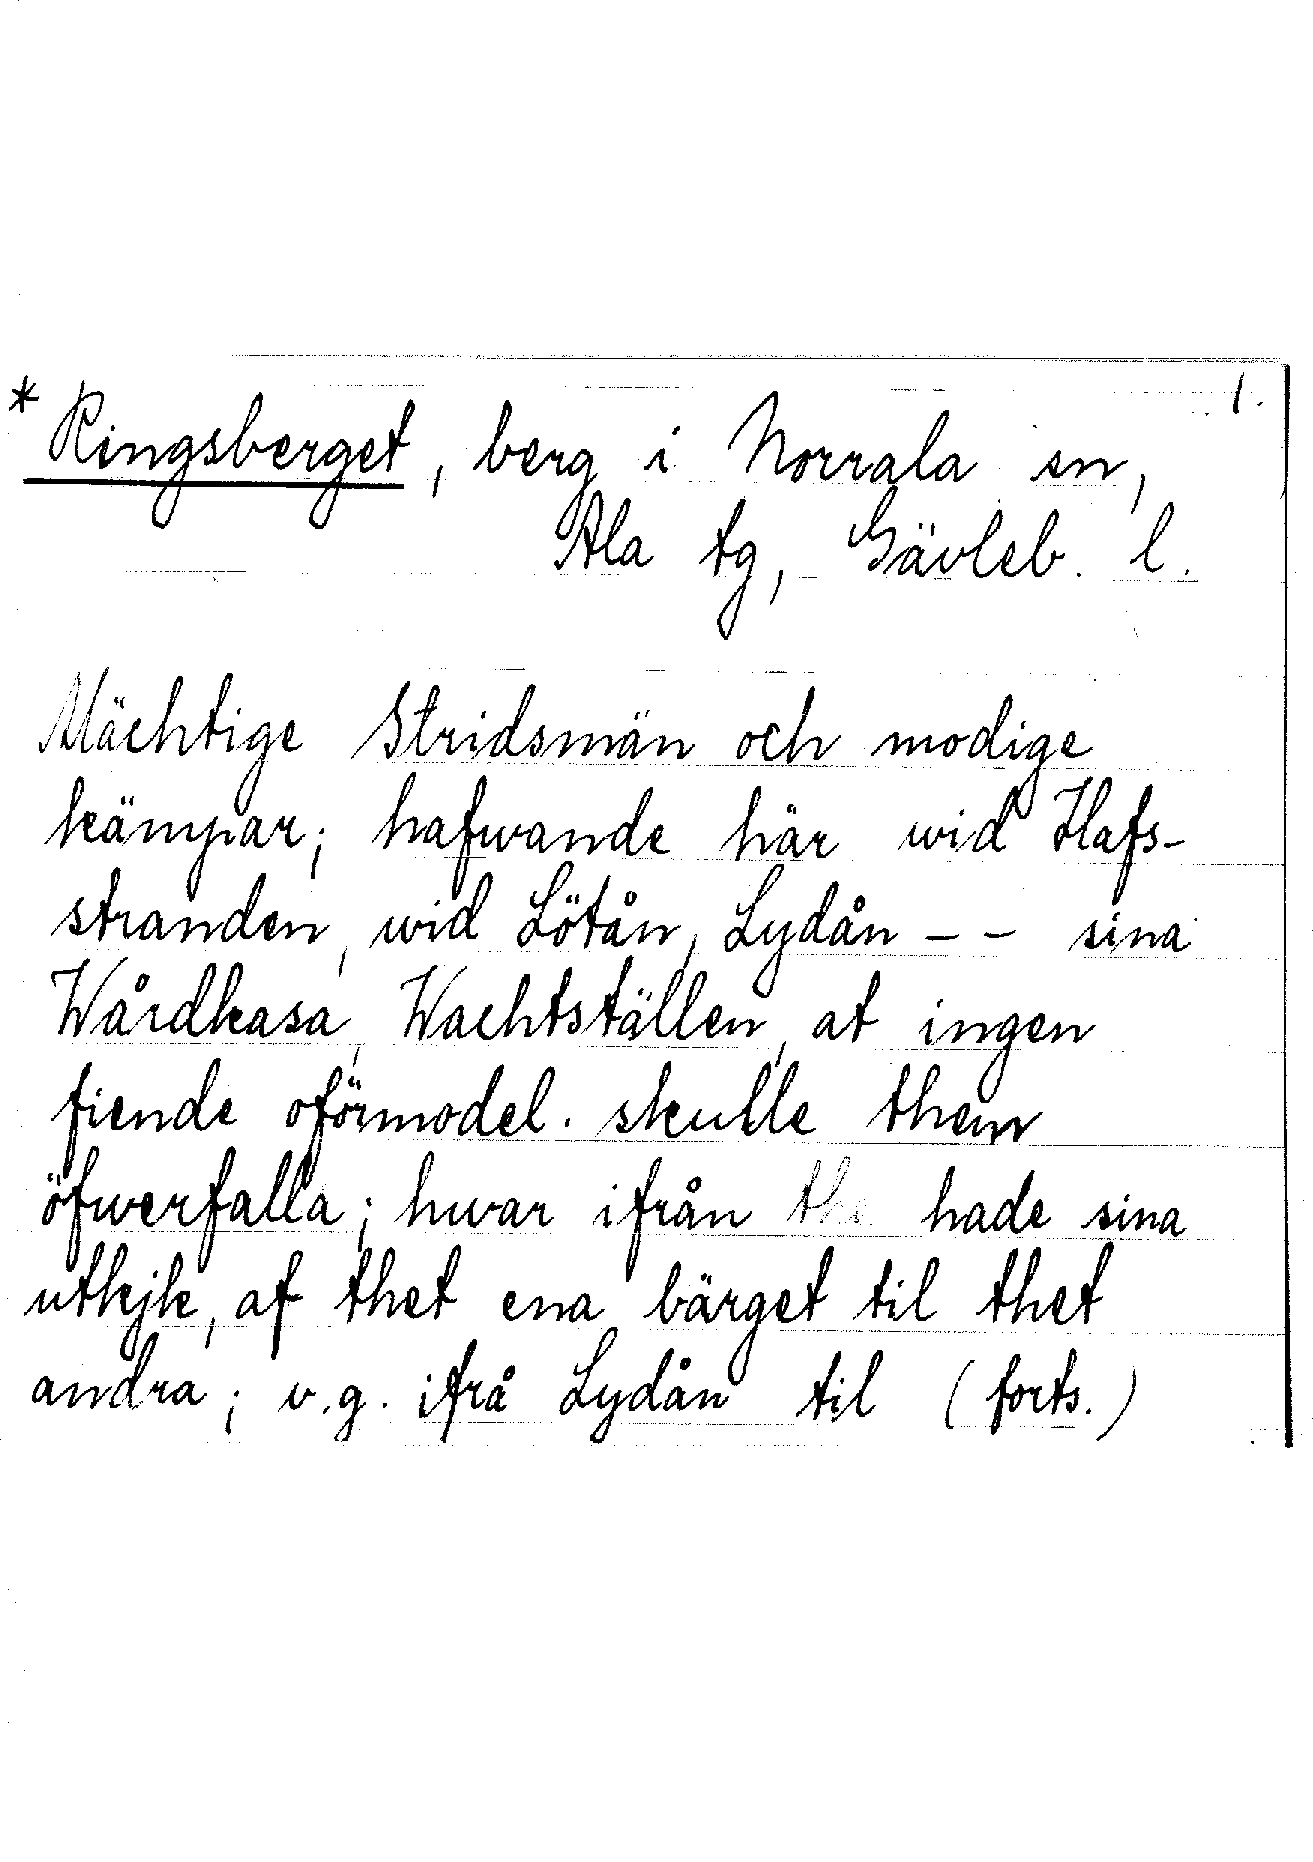 1.
* Ringsberget, berg i Norrala sn,
Ala tg, Gävleb. l.
Mächtige Stridsmän och modige
kämpar; hafwande här wid Hafs-
stranden, wid Lötån, Lydån -- sina
Wårdkasa, Wachtställen, at ingen
fiende oförmodel. skulle them
öfwerfalla; hwar ifrån the hade sina
utkjk, af thet ena bärget til thet
andra; v.g. ifrå Lydån til (forts.)